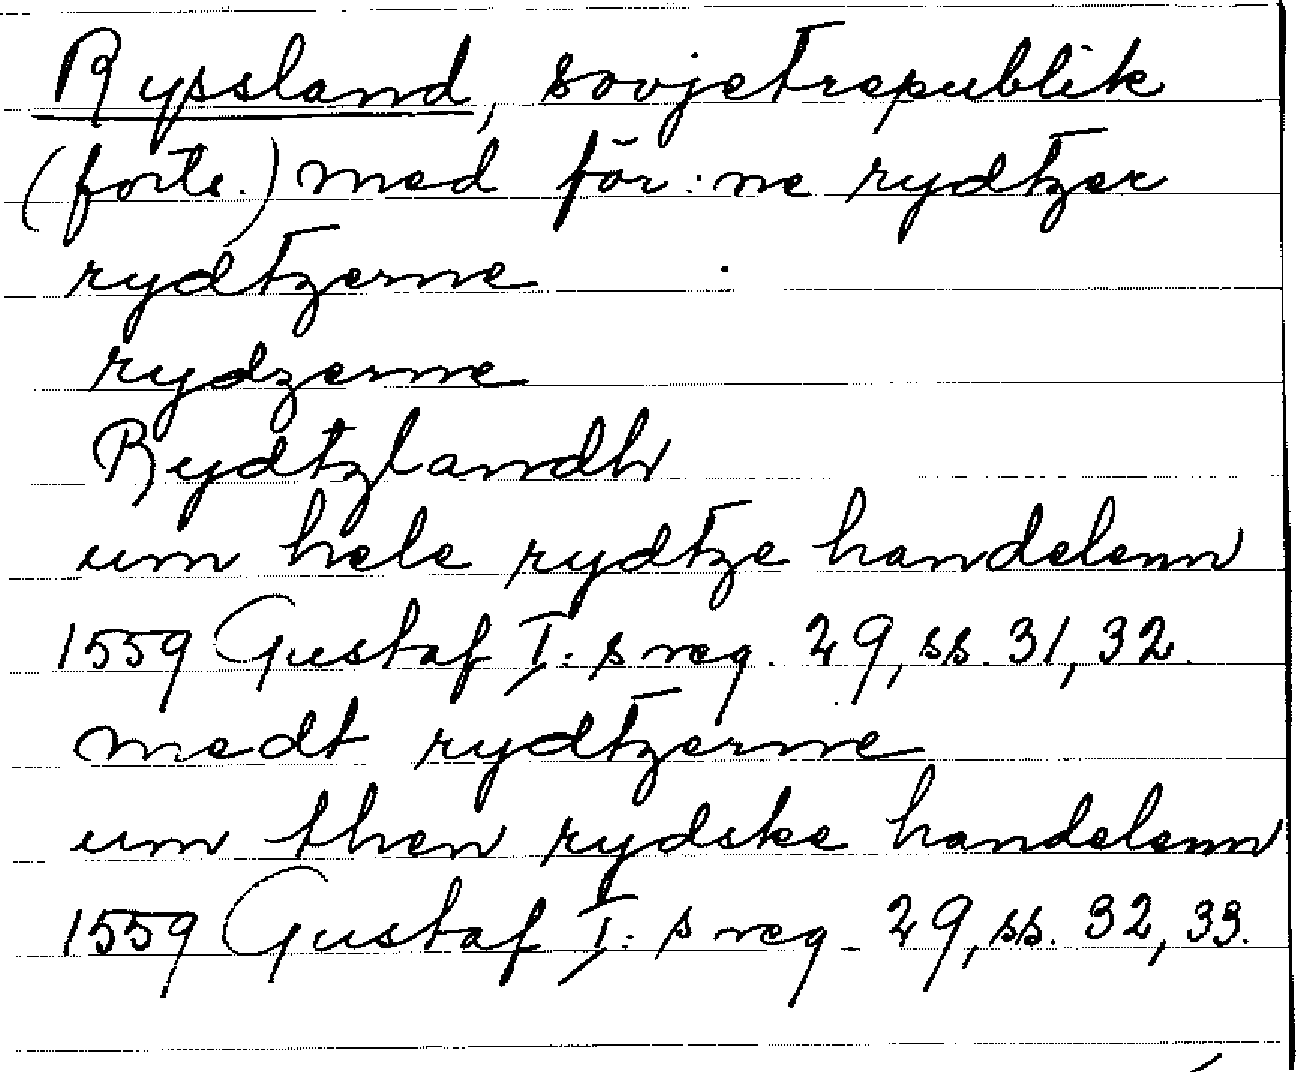 Ryssland, sovjetrepublik
(forts.) med för:ne rydtzer
rydtzerne
rydzerne
Rydtzlandh
um hele rydtze handelenn
1559 Gustaf I:s reg. 29, ss. 31, 32.
medt rydtzerne
um then rydske handelenn
1559 Gustaf I:s reg. 29, ss. 32, 33.